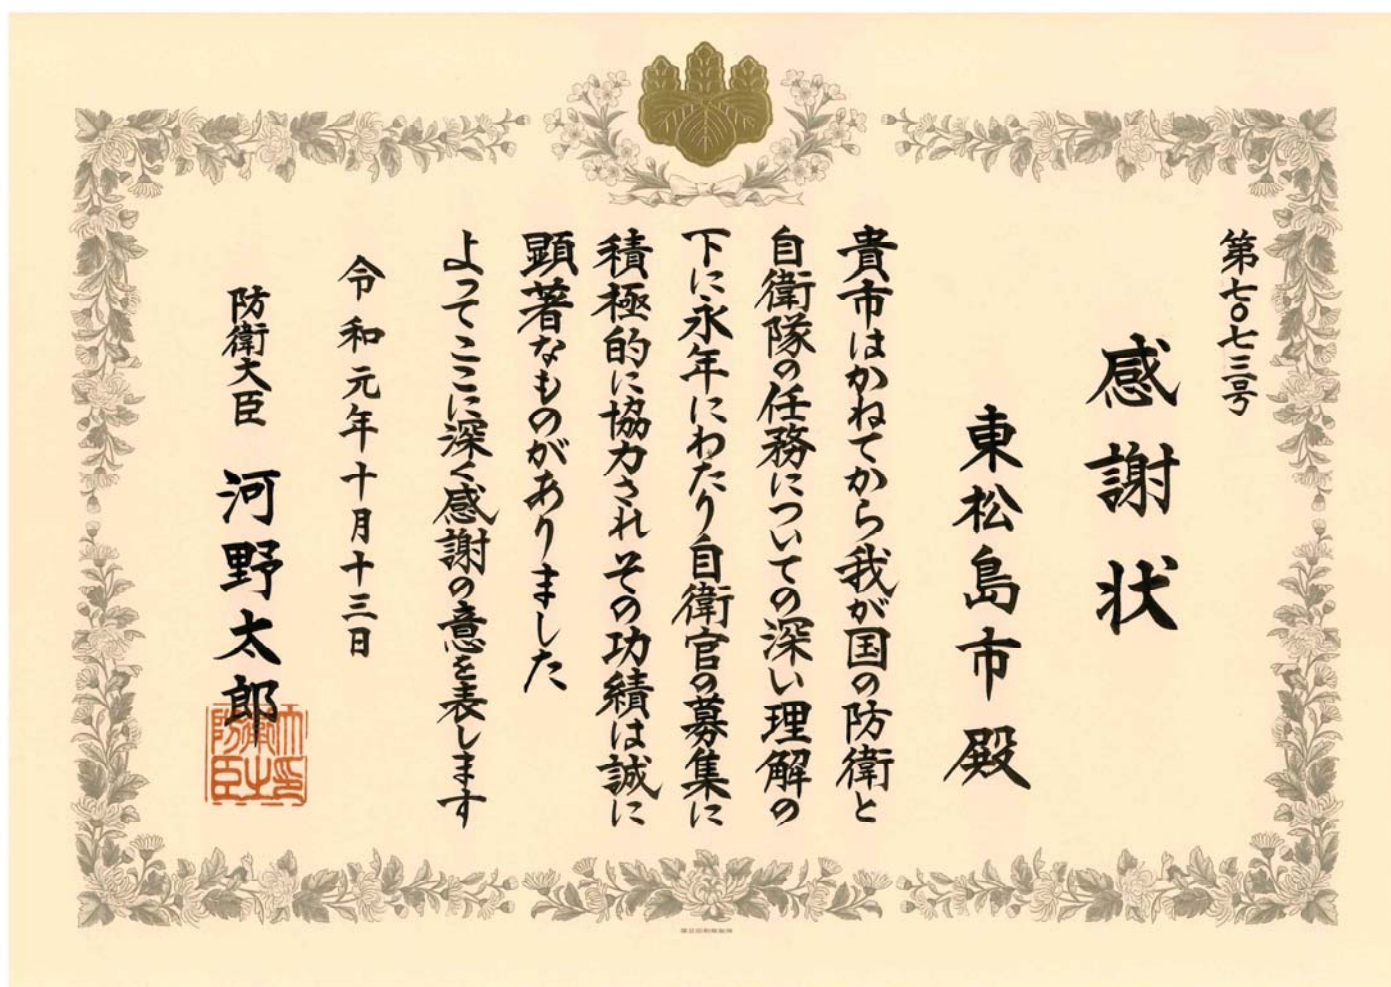 第七〇七三号
感謝状
東松島市殿
貴市はかねてから我が国の防衛と
自衛隊の任務についての深い理解の
下に永年にわたり自衛官の募集に
積極的に協力されその功績は誠に
顕著なものがありました
よってここに深く感謝の意を表します
令和元年十月十三日
防衛大臣 河野太郎
防衛大臣之印